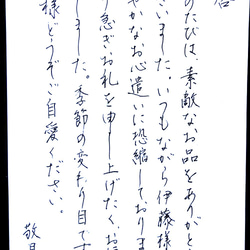 のたびは、素敵なお品をありがと
いました。いつもながら伊藤様
やかなお心遣いに恐縮しておりま
急ぎ、お礼を申し上げたく、お
しました。季節の変わり目です
様どうぞご自愛ください。
敬